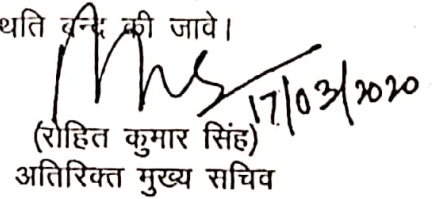 थति बन्द की जावे।
17/03/2020
(रोहित कुमार सिंह)
अतिरिक्त मुख्य सचिव